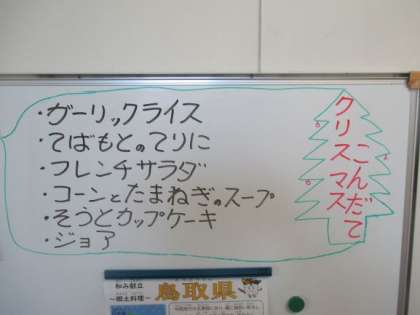 クリスマス
こんだて
・ガーリックライス
・てばもとのてりに
・フレンチサラダ
・コーンとたまねぎのスープ
・そうとカップケーキ
・ジョア
和み献立
～郷土料理～
鳥取県